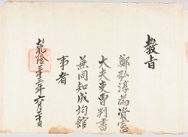 教旨
鄭弘淳為資憲
大夫吏曹判書
兼同知成均館
事者
乾隆三十三年六月二十日